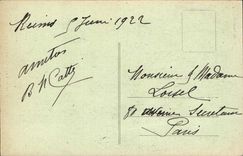 Reims 5 Juin 1922
amitos
B M Catty
Monsieur & Madame
Loisel
80 avenue Secretan
Paris